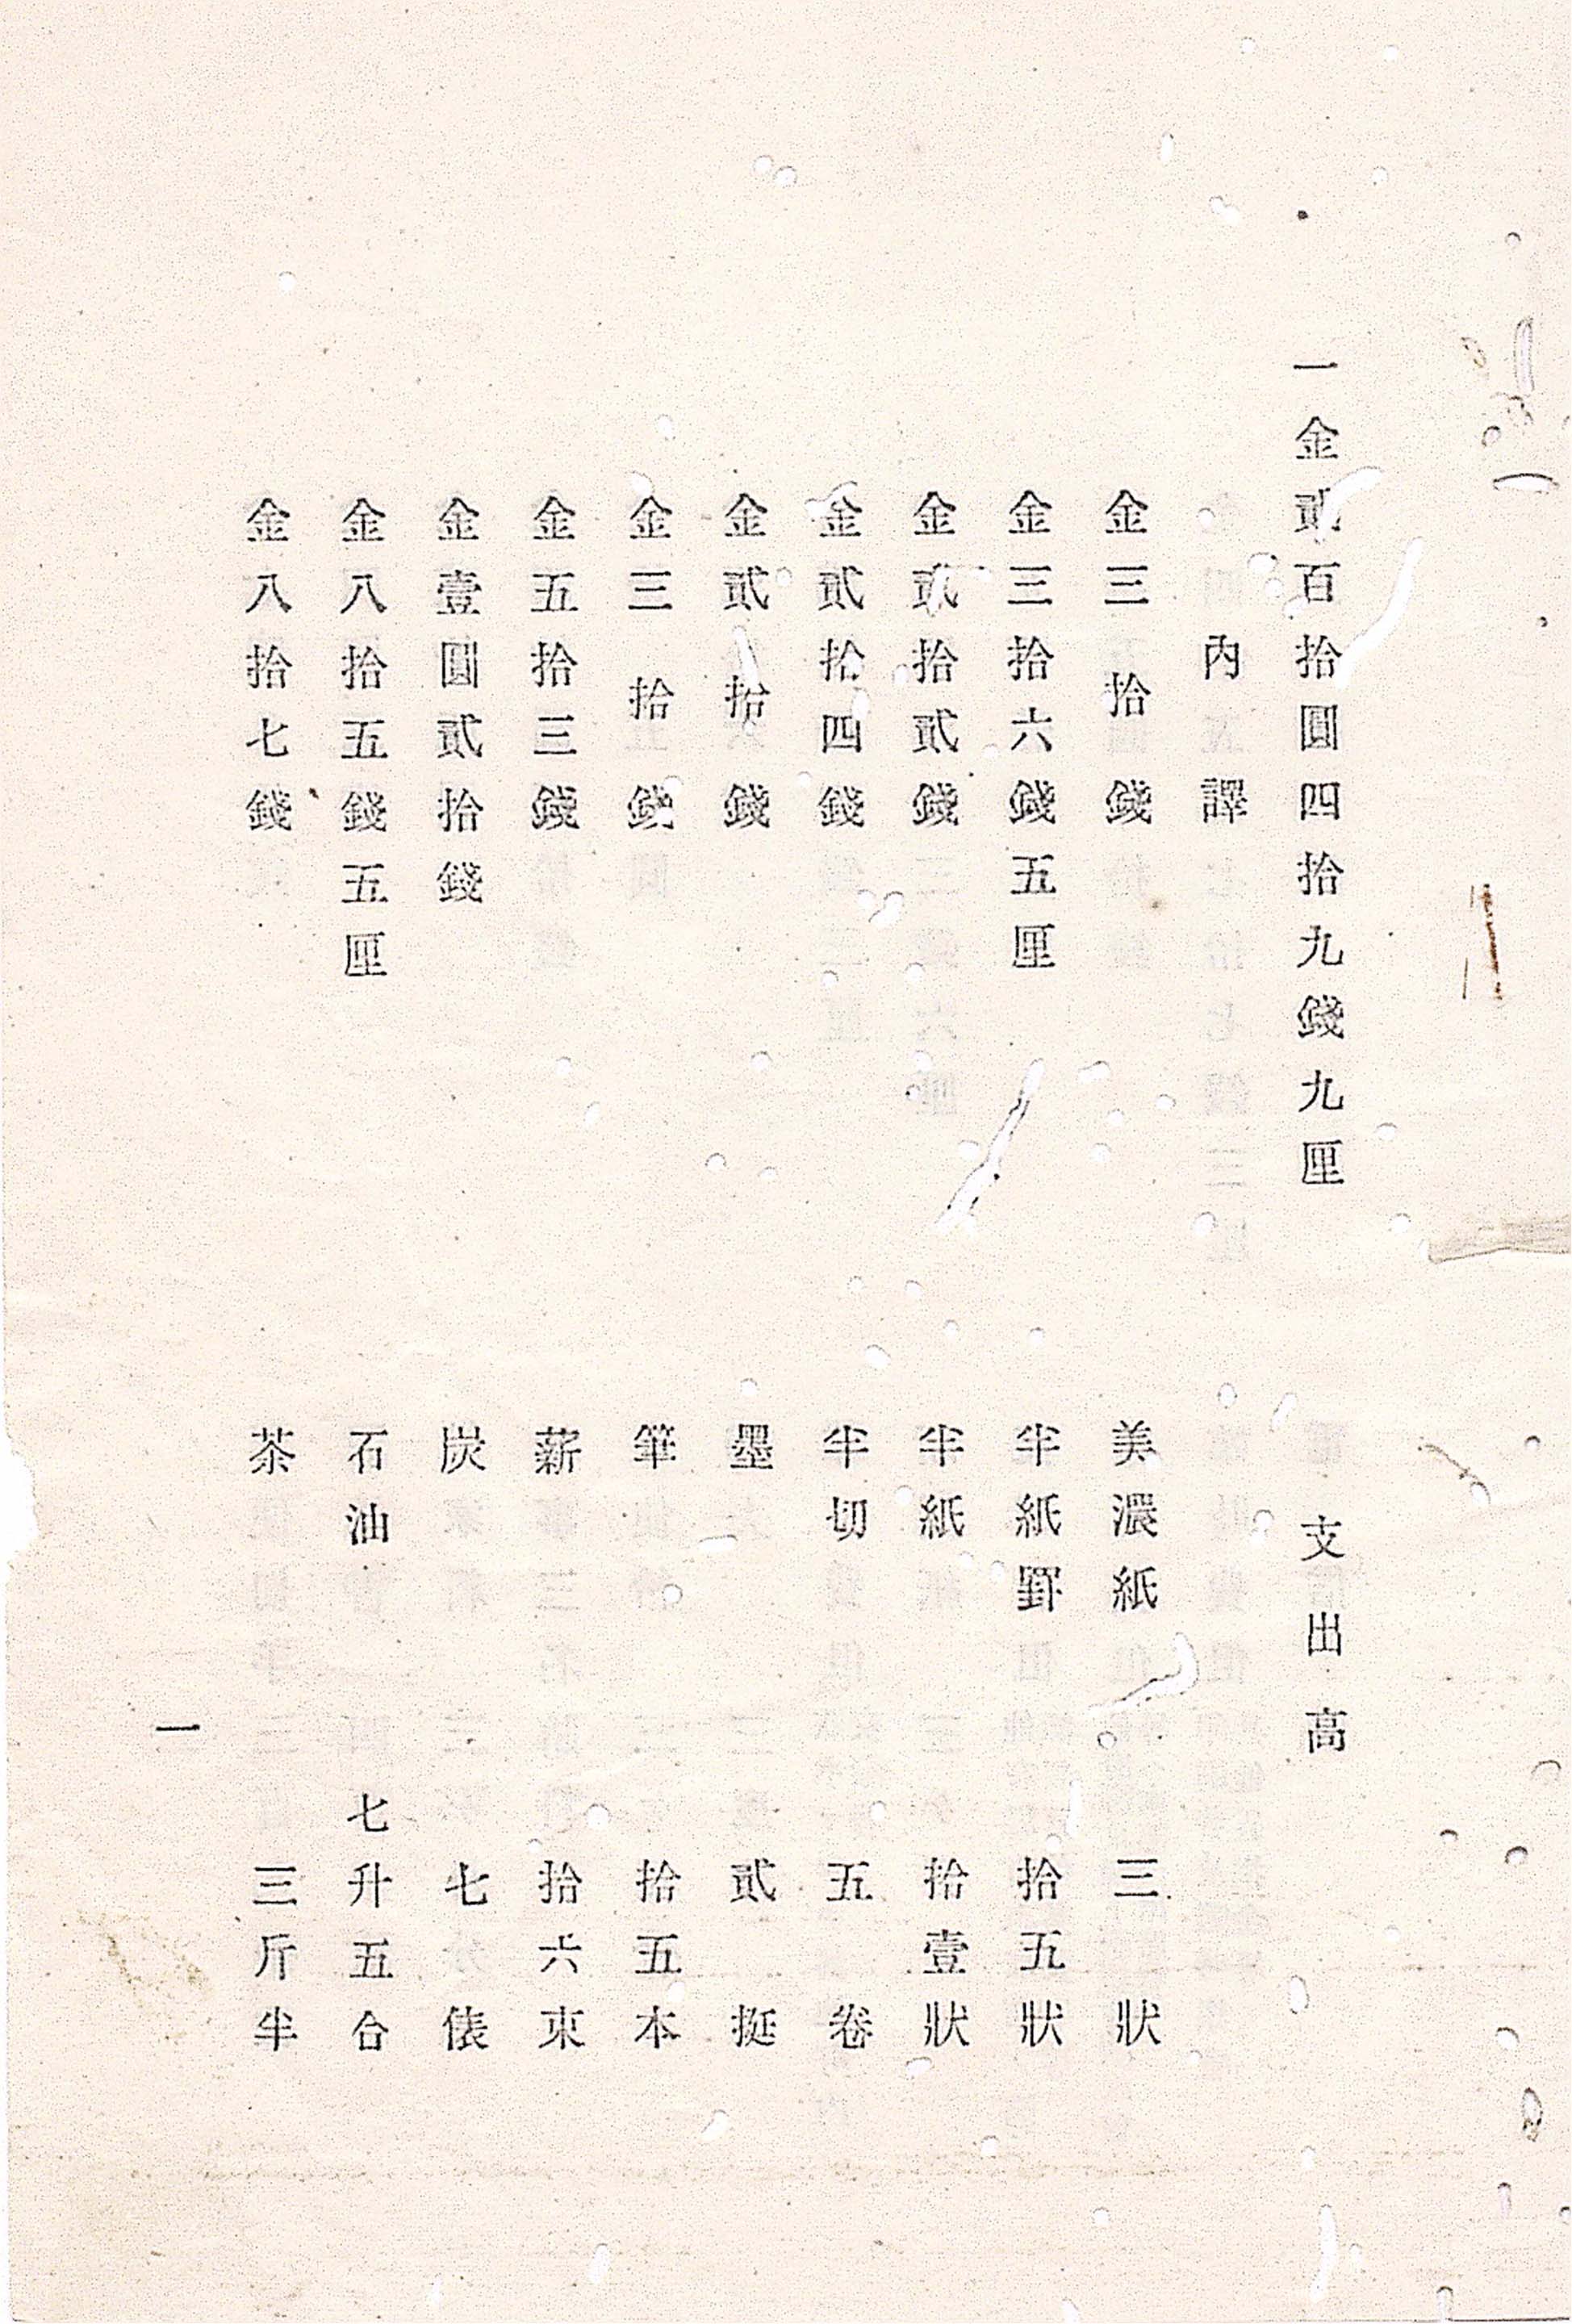 一金貳百拾圓四拾九錢九厘　支出高
內譯
金三拾錢　美濃紙　三狀
金三拾六錢五厘　半紙罫　拾五狀
金貳拾貳錢　半紙　拾壹狀
金貳拾四錢　半切　五卷
金貳拾錢　墨　貳挺
金三拾錢　筆　拾五本
金五拾三錢　薪　拾六束
金壹圓貳拾錢　炭　七俵
金八拾五錢五厘　石油　七升五合
金八拾七錢　茶　三斤半
一